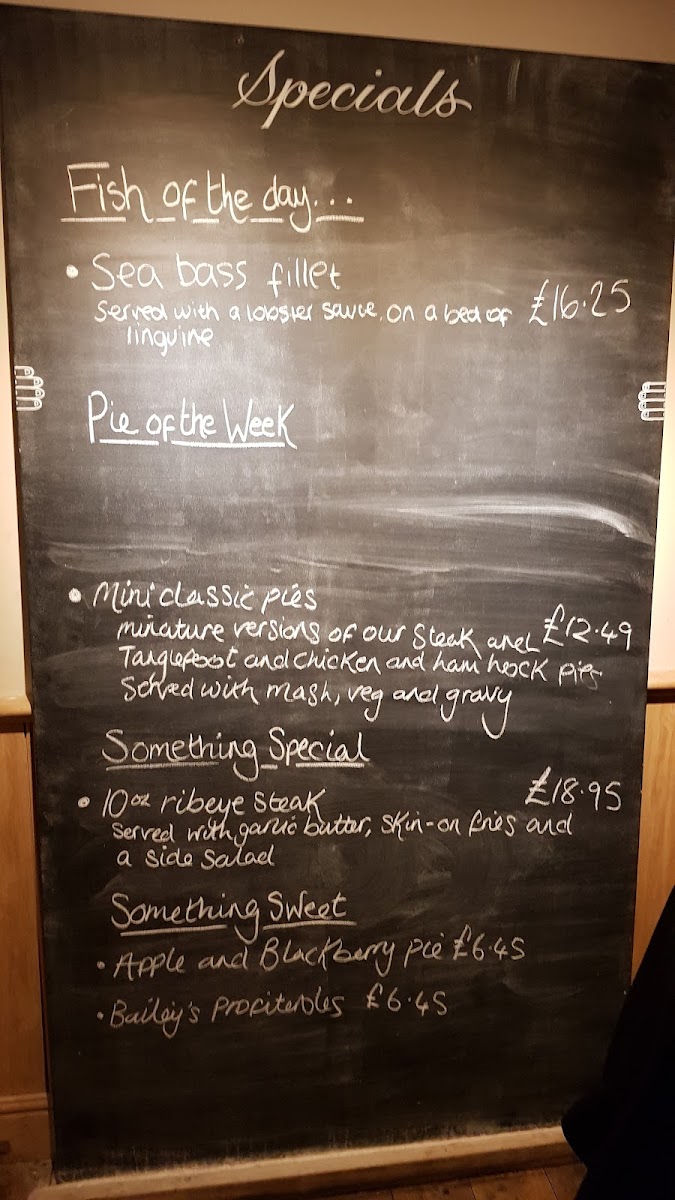 Specials
Fish of the day...
• Sea bass fillet
Served with a lobster sauce, on a bed of £16.25
linguine
Pie of the Week
• Mini classic pies
minature versions of our Steak and £12.49
Tanglefoot and chicken and ham hock pies
Served with mash, veg and gravy
Something Special
• 10oz ribeye steak £18.95
served with garlic butter, skin-on fries and
a side salad
Something Sweet
• Apple and Blackberry pie £6.45
• Bailey's Profiteroles £6.45